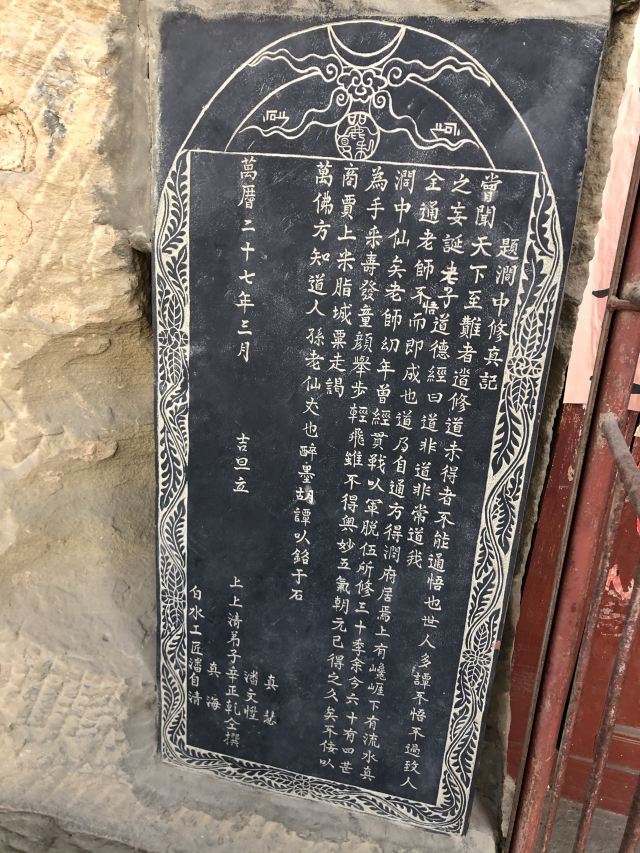 題澗中修真記
嘗聞天下至難者遊修道未得者不能通悟也世人多譚不悟不過致人
之妄誕老子道德經曰道非道非常道我
全通老師不悟而即成也道乃自通方得澗府居焉上有巉崖下有流水真
澗中仙矣老師幼年曾經貫戰以軍脫伍所修三十季余今六十有四甚
為手采壽發童顏舉步輕飛雖不得與妙五氣朝元已得之久矣不佞以
商賈上米脂城粟走謁
萬佛方知道人孫老仙丈也醉墨胡譚以銘于石
真慧
潘文惺
上上清弟子辛正乾仝撰
真海
萬曆二十七年三月 吉旦立
白水工匠潘自清